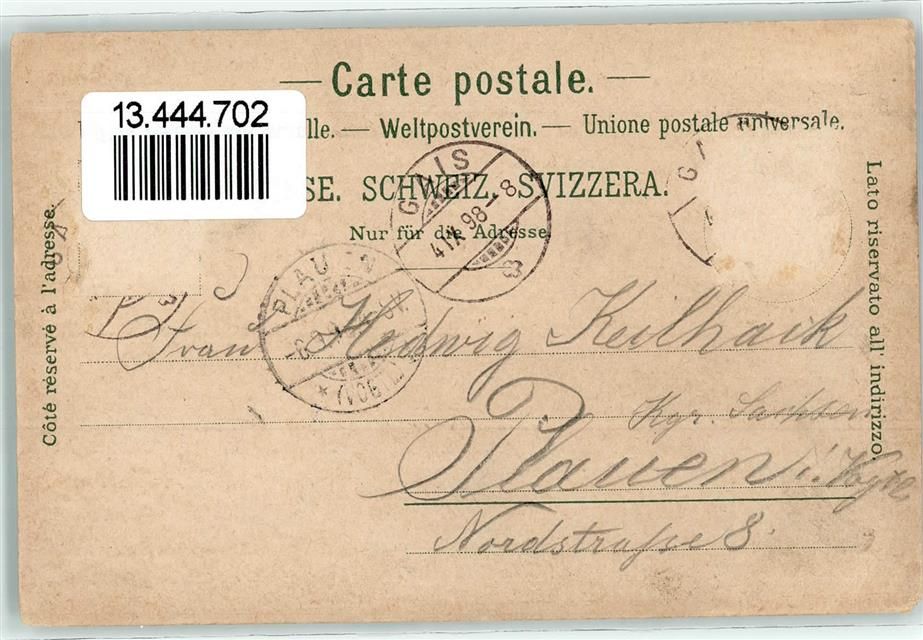 — Carte postale. —
13.444.702
lle. — Weltpostverein. — Unione postale universale.
SE. SCHWEIZ. SVIZZERA.
Nur für die Adresse.
Côté réservé à l'adresse.
Lato riservato all' indirizzo.
GLIS
4 IX 98 - 8
PLAUEN
Frau Hedwig Keilhack
Kgr. Sachsen
Plauen i. Vgtl
Nordstraße 8.